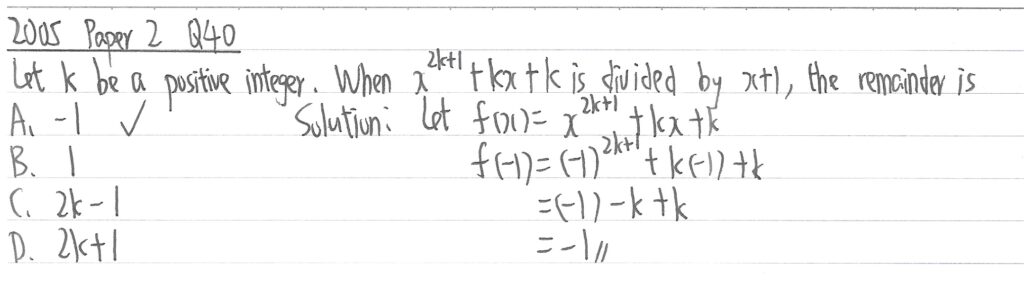 2005 Paper 2 Q40
Let k be a positive integer. When x^{2k+1} + kx + k is divided by x+1, the remainder is
A. -1 ✓ Solution: Let f(x) = x^{2k+1} + kx + k
B. 1 f(-1) = (-1)^{2k+1} + k(-1) + k
C. 2k-1 =(-1) - k + k
D. 2k+1 = -1//